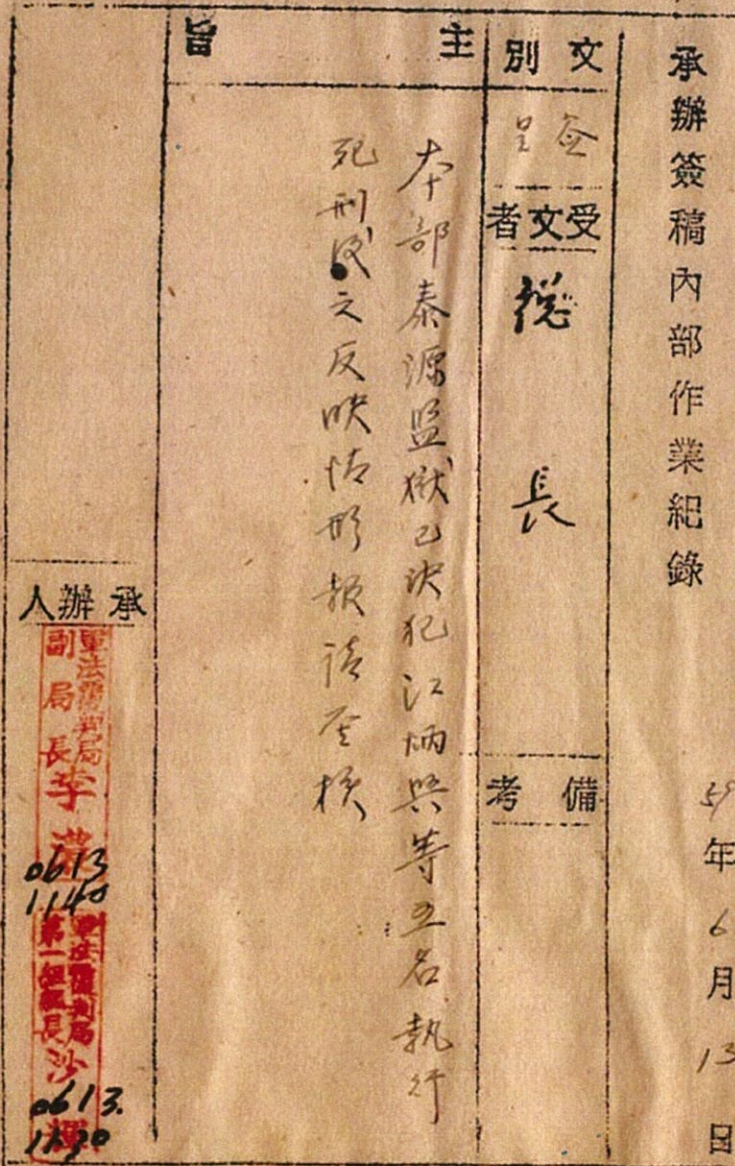 承辦簽稿內部作業紀錄
59年6月13日
文別
簽呈
受文者
總長
備考
主旨
本部泰源監獄已決犯江炳興等五名執行
死刑後之反映情形報請鑒核
承辦人
軍法覆判局
副局長李濃
0613
1140
軍法覆判局
第一組組長沙輝
0613.
1130